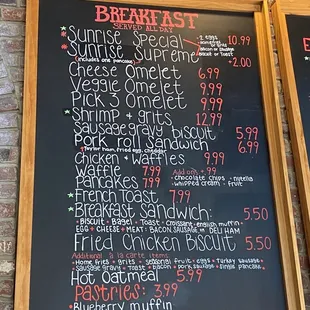 BREAKFAST
SERVED ALL DAY
* Sunrise Special - 2 eggs 10.99
* Sunrise Supreme bacon or sausage
(includes one pancake) biscuit or toast +2.00
Cheese Omelet 6.99
Veggie Omelet 9.99
Pick 3 Omelet 9.99
* Shrimp + grits 12.99
Sausage gravy biscuit 5.99
Pork roll sandwich 6.99
* Taylor ham, fried egg, cheddar
Chicken + Waffles 9.99
Waffle 7.99 Add on: +.99
Pancakes 7.99 - chocolate chips - nutella
- whipped cream - fruit
* French Toast 7.99
* Breakfast Sandwich: 5.50
• Biscuit • Bagel • Toast • Croissant • english muffin •
EGG + CHEESE + MEAT: BACON, SAUSAGE or DELI HAM
Fried Chicken Biscuit 5.50
Additional a la carte items
• Home fries • grits • seasonal fruit • eggs • Turkey sausage
• sausage gravy • Toast • bacon • pork sausage • single pancake
Hot Oatmeal 5.99
Pastries: 3.99
• Blueberry muffin